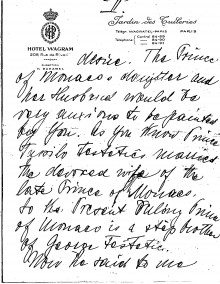 HOTEL WAGRAM
208 Rue de Rivoli
Jardin des Tuileries
PARIS
desire. The Prince
of Monaco's daughter and
her Husband would be
very anxious to be painted
by you. As you know Prince
Festetics married
the divorced wife of the
late Prince of Monaco.
So the Present Prince
of Monaco is a step brother
of George Festetic.
Now he said to me